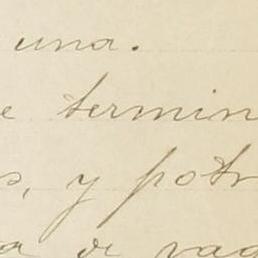 una.
e termin
s, y potr
a de vag